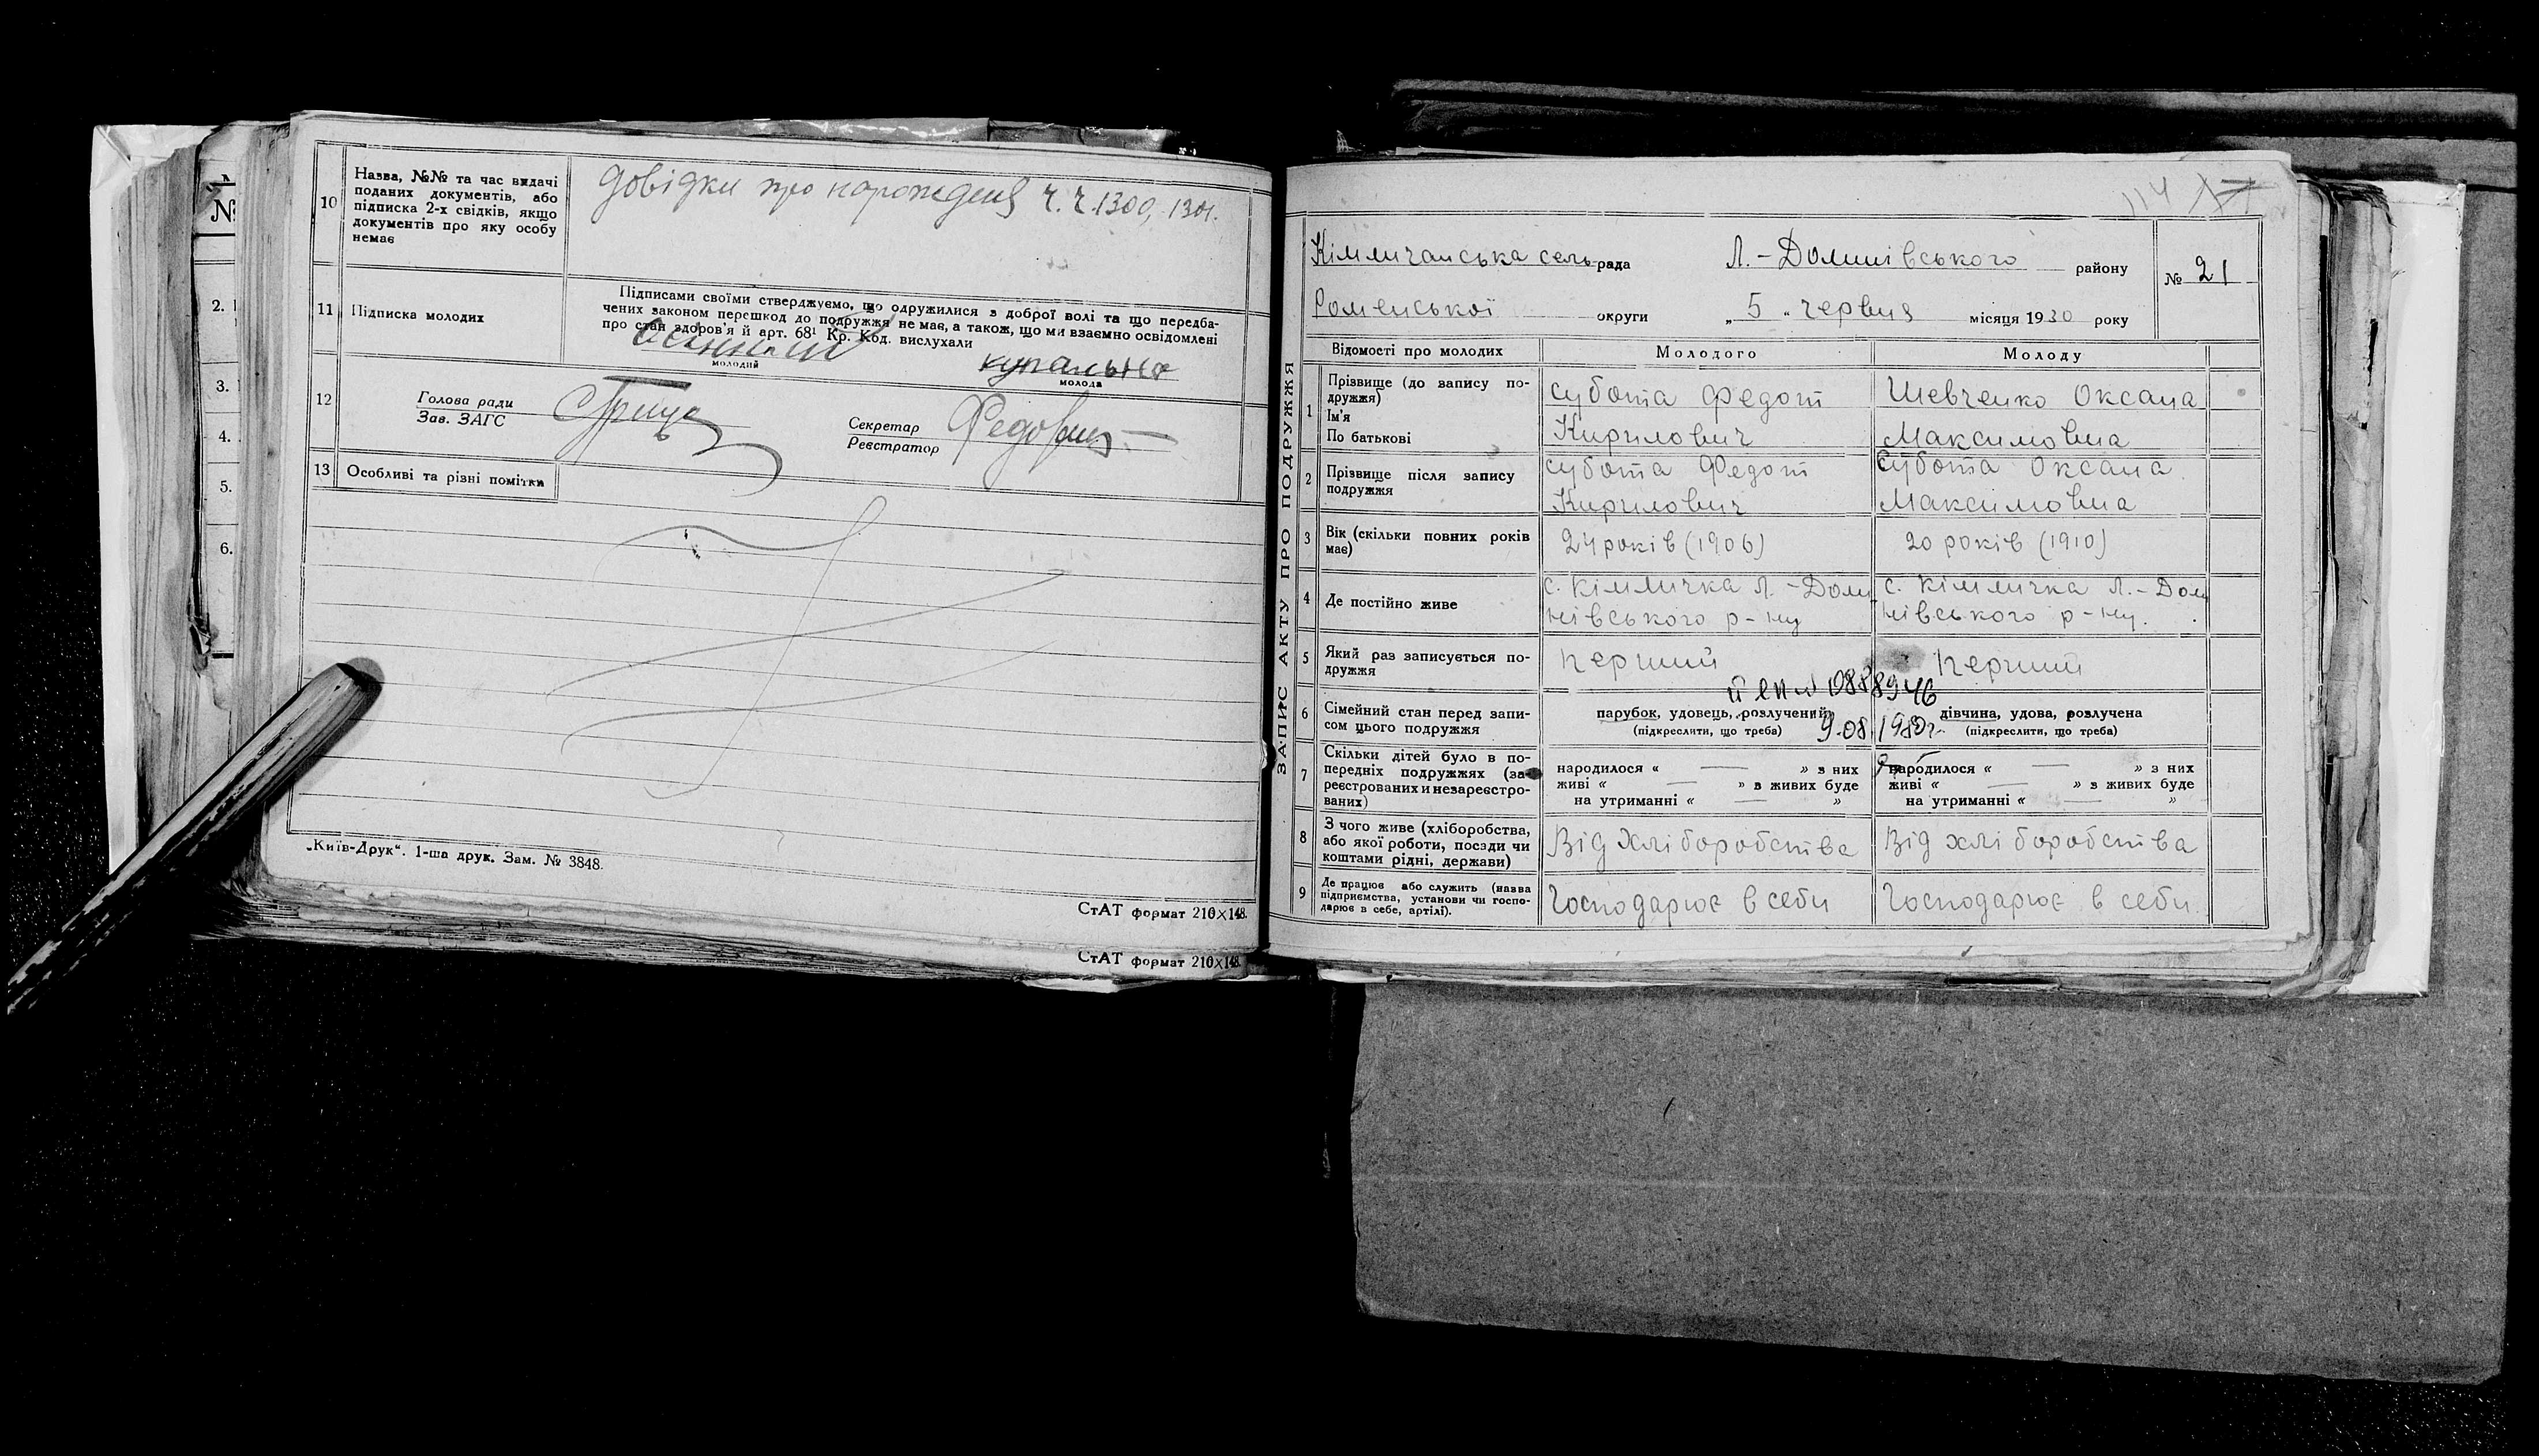 10
Назва, №№ та час видачі
поданих документів, або
підписка 2-х свідків, якщо
документів про яку особу
немає
довідки про нарождення ч.ч. 1300, 1301.
11
Підписка молодих
Підписами своїми стверджуємо, що одружилися з доброї волі та що передба-
чених законом перешкод до подружжя не має, а також, що ми взаємно освідомлені
про стан здоров'я й арт. 68¹ Кр. Код. вислухали
молодий
молода
12
Голова ради
Зав. ЗАГС
Секретар
Реєстратор
13
Особливі та різні помітки
„Київ-Друк“. 1-ша друк. Зам. № 3848.
СтАТ формат 210×148.
СтАТ формат 210×148.
№
2.
3.
4.
5.
6.
114
ЗАПИС АКТУ ПРО ПОДРУЖЖЯ
Кімличанська сельрада Л.-Долинівського району
№ 21
Роменської округи „5“ червня місяця 1930 року
Відомості про молодих Молодого Молоду
1
Прізвище (до запису по-
дружжя)
Ім'я
По батькові
Субота Федот
Кирилович
Шевченко Оксана
Максимовна
2
Прізвище після запису
подружжя
Субота Федот
Кирилович
Субота Оксана
Максимовна
3
Вік (скільки повних років
має)
24 років (1906)
20 років (1910)
4
Де постійно живе
с. Кімличка Л.-Доли
нівського р-ну
с. Кімличка Л.-Доли
нівського р-ну.
5
Який раз записується по-
дружжя
перший
перший
6
Сімейний стан перед запи-
сом цього подружжя
парубок, удовець, розлучений
(підкреслити, що треба)
дівчина, удова, розлучена
(підкреслити, що треба)
9.08.1980г.
7
Скільки дітей було в по-
передніх подружжях (за-
реєстрованих и незареєстро-
ваних)
народилося « — » з них
живі « — » в живих буде
на утриманні « — »
народилося « — » з них
живі « — » з живих буде
на утриманні « — »
8
З чого живе (хліборобства,
або якої роботи, посади чи
коштами рідні, держави)
Від хліборобства
Від хліборобства
9
Де працює або служить (назва
підприємства, установи чи госпо-
дарює в себе, артілі).
Господарює в себи
Господарює в себи